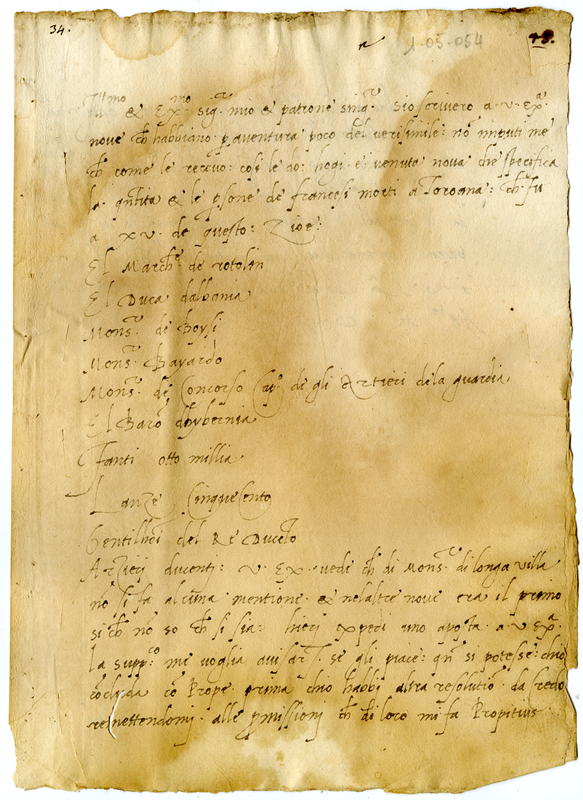 34.
1-05-054
48.
Ill.mo et Ex.mo sig.r mio et patrone sing.r Sio scrivero a v. ex.a
nove ch habbiano p aventura poco del verisimile: no imputi me
ch come le recevo: cosi le do: hogi e venuta nova che specifica
la qntita et le psone de francesi morti a Toroana: ch fu
a xv. de questo: Zioe:
El March.e de rotolin
El Duca dalbania
Mons.r de Boysi
Mons.r Bayardo
Mons.r de Concorso Cap.o di gli Artieri dela guardia
El Baro dhybernia
Fanti otto millia
Lanze Cinquecento
Gentilhoi del Re Ducento
Artieri ducenti: V. Ex. vede ch di Mons.r di longa villa
no si fa alcuna mentione et nelaltre nove era il primo
si ch no so ch si sia: hieri expedi uno aposta a v. Ex.a
la supp.co me voglia se gli piace: qn si potesse: chio
cocluda co Prope prima chio habbi altra resolutio da
remettendomi alle pmissioni ch di loro mi fa Propitius